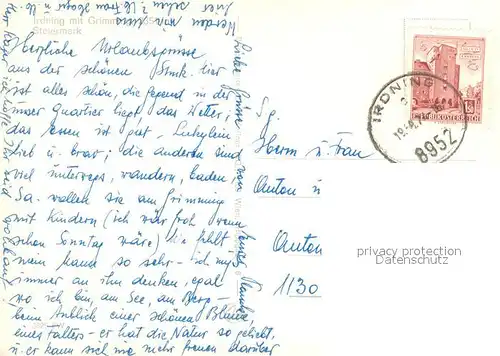 Irdning mit Grimming
Steiermark
Herzliche Urlaubsgrüsse
aus der schönen Stmk. hier
ist alles schön, die Gegend in der
unser Quartier liegt das Wetter,
das Essen ist gut,
lieb u. brav; die anderen sind
viel unterwegs, wandern, baden,
Sa. wollen sie am Grimming
mit Kindern (ich wär froh wenn
schon Sonntag wäre) Mir fehlt
mein Mann so sehr - ich muß
immer an ihn denken, egal
wo ich bin, am See, am Berg -
beim Anblick einer schönen Blume,
eines Falters - er hat die Natur so geliebt
u. er kann sich nie mehr freuen darüber
Liebe Grüsse von
IRDNING
8952
REPUBLIK ÖSTERREICH
Sg.
Herrn u. Frau
Anton u
Anton
1130
privacy protection
Datenschutz